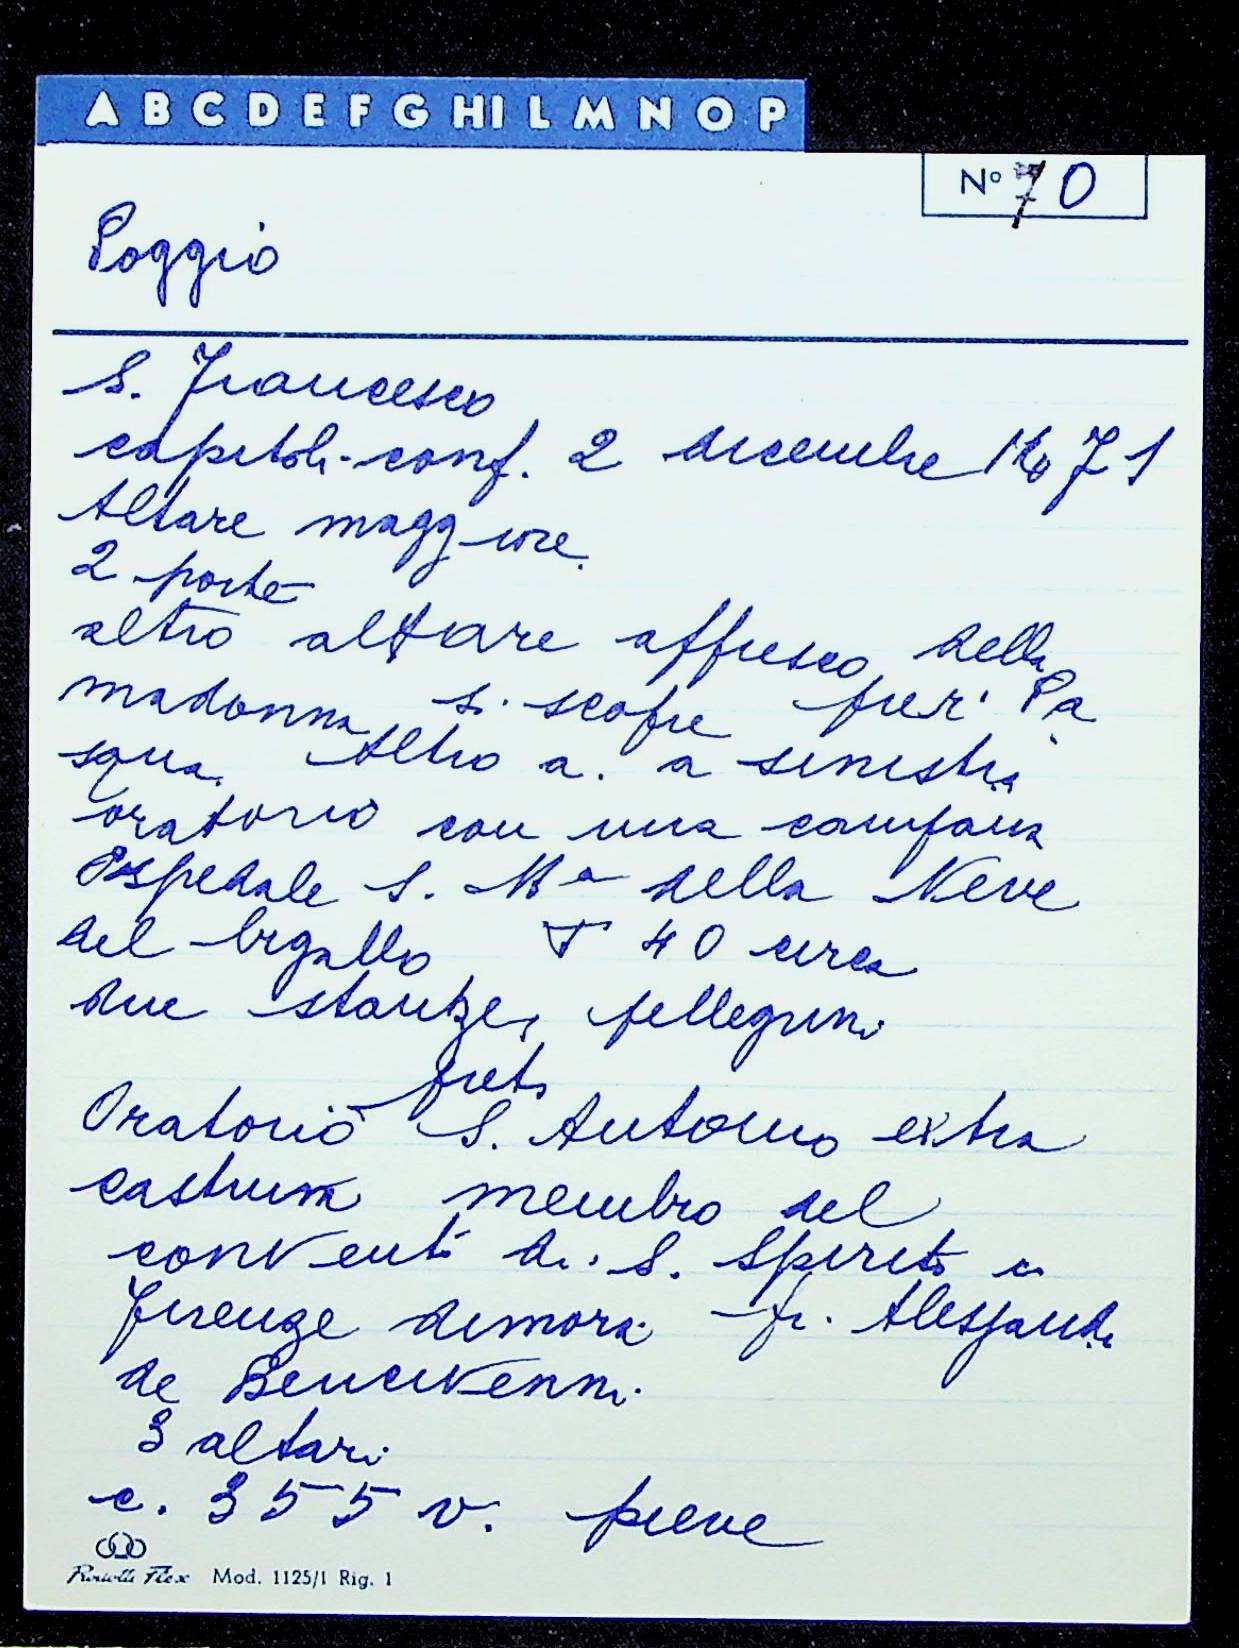 A B C D E F G HI L M N O P
Nº 70
Poggio
S. Francesco
capitoli-conf. 2 dicembre 1671
Altare maggiore.
2 porte
altro altare affresco della
madonna si scopre per Pa
squa. Altro a. a sinistra
oratorio con una campana
Ospedale S. Mª della Neve
del bigallo 40 circa
due stanze, pellegrini
preti
Oratorio S. Antonio extra
castrum membro del
convento di S. Spirito a
Firenze dimora fr. Alessandro
de Bencivenni.
3 altari
c. 355 v. pieve
Flex Mod. 1125/1 Rig. 1